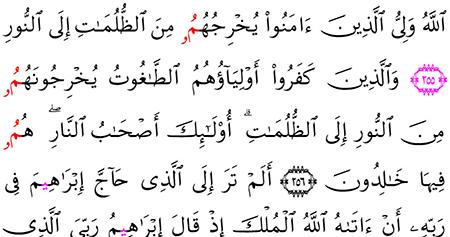 اللَّهُ وَلِيُّ الَّذِينَ ءَامَنُوا۟ يُخْرِجُهُمُۥ مِنَ الظُّلُمَٰتِ إِلَى النُّورِ
٢٥٥ وَالَّذِينَ كَفَرُوا۟ أَوْلِيَآؤُهُمُ الطَّٰغُوتُ يُخْرِجُونَهُمُۥ
مِنَ النُّورِ إِلَى الظُّلُمَٰتِۗ أُو۟لَٰٓئِكَ أَصْحَٰبُ النَّارِۖ هُمُۥ
فِيهَا خَٰلِدُونَ ٢٥٦ أَلَمْ تَرَ إِلَى الَّذِى حَآجَّ إِبْرَٰهِيمَ فِى
رَبِّهِۦٓ أَنْ ءَاتَىٰهُ اللَّهُ الْمُلْكَ إِذْ قَالَ إِبْرَٰهِيمُ رَبِّىَ الَّذِى